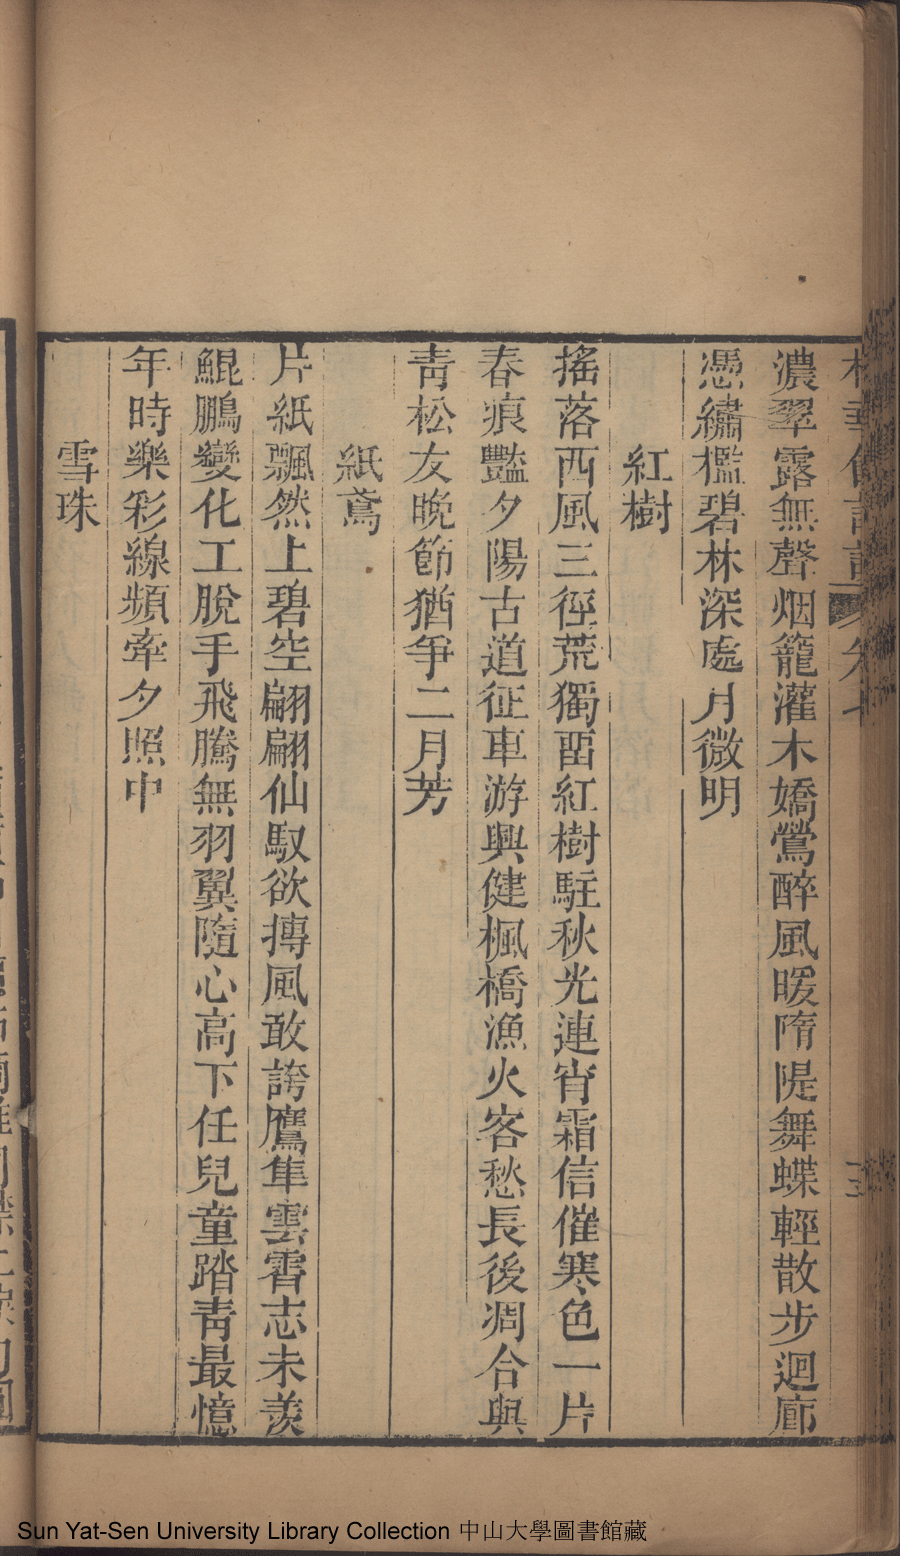 濃翠露無聲烟籠灌木嬌鶯醉風暖隋隄舞蝶輕散步迴廊
憑繡檻碧林深處月微明
紅樹
搖落西風三徑荒獨畱紅樹駐秋光連宵霜信催寒色一片
春痕豔夕陽古道征車游興健楓橋漁火客愁長後凋合與
靑松友晚節猶爭二月芳
紙鳶
片紙飄然上碧空翩翩仙馭欲摶風敢誇鷹隼雲霄志未羨
鯤鵬變化工脫手飛騰無羽翼隨心高下任兒童踏靑最憶
年時樂彩線頻牽夕照中
雪珠
Sun Yat-Sen University Library Collection 中山大學圖書館藏